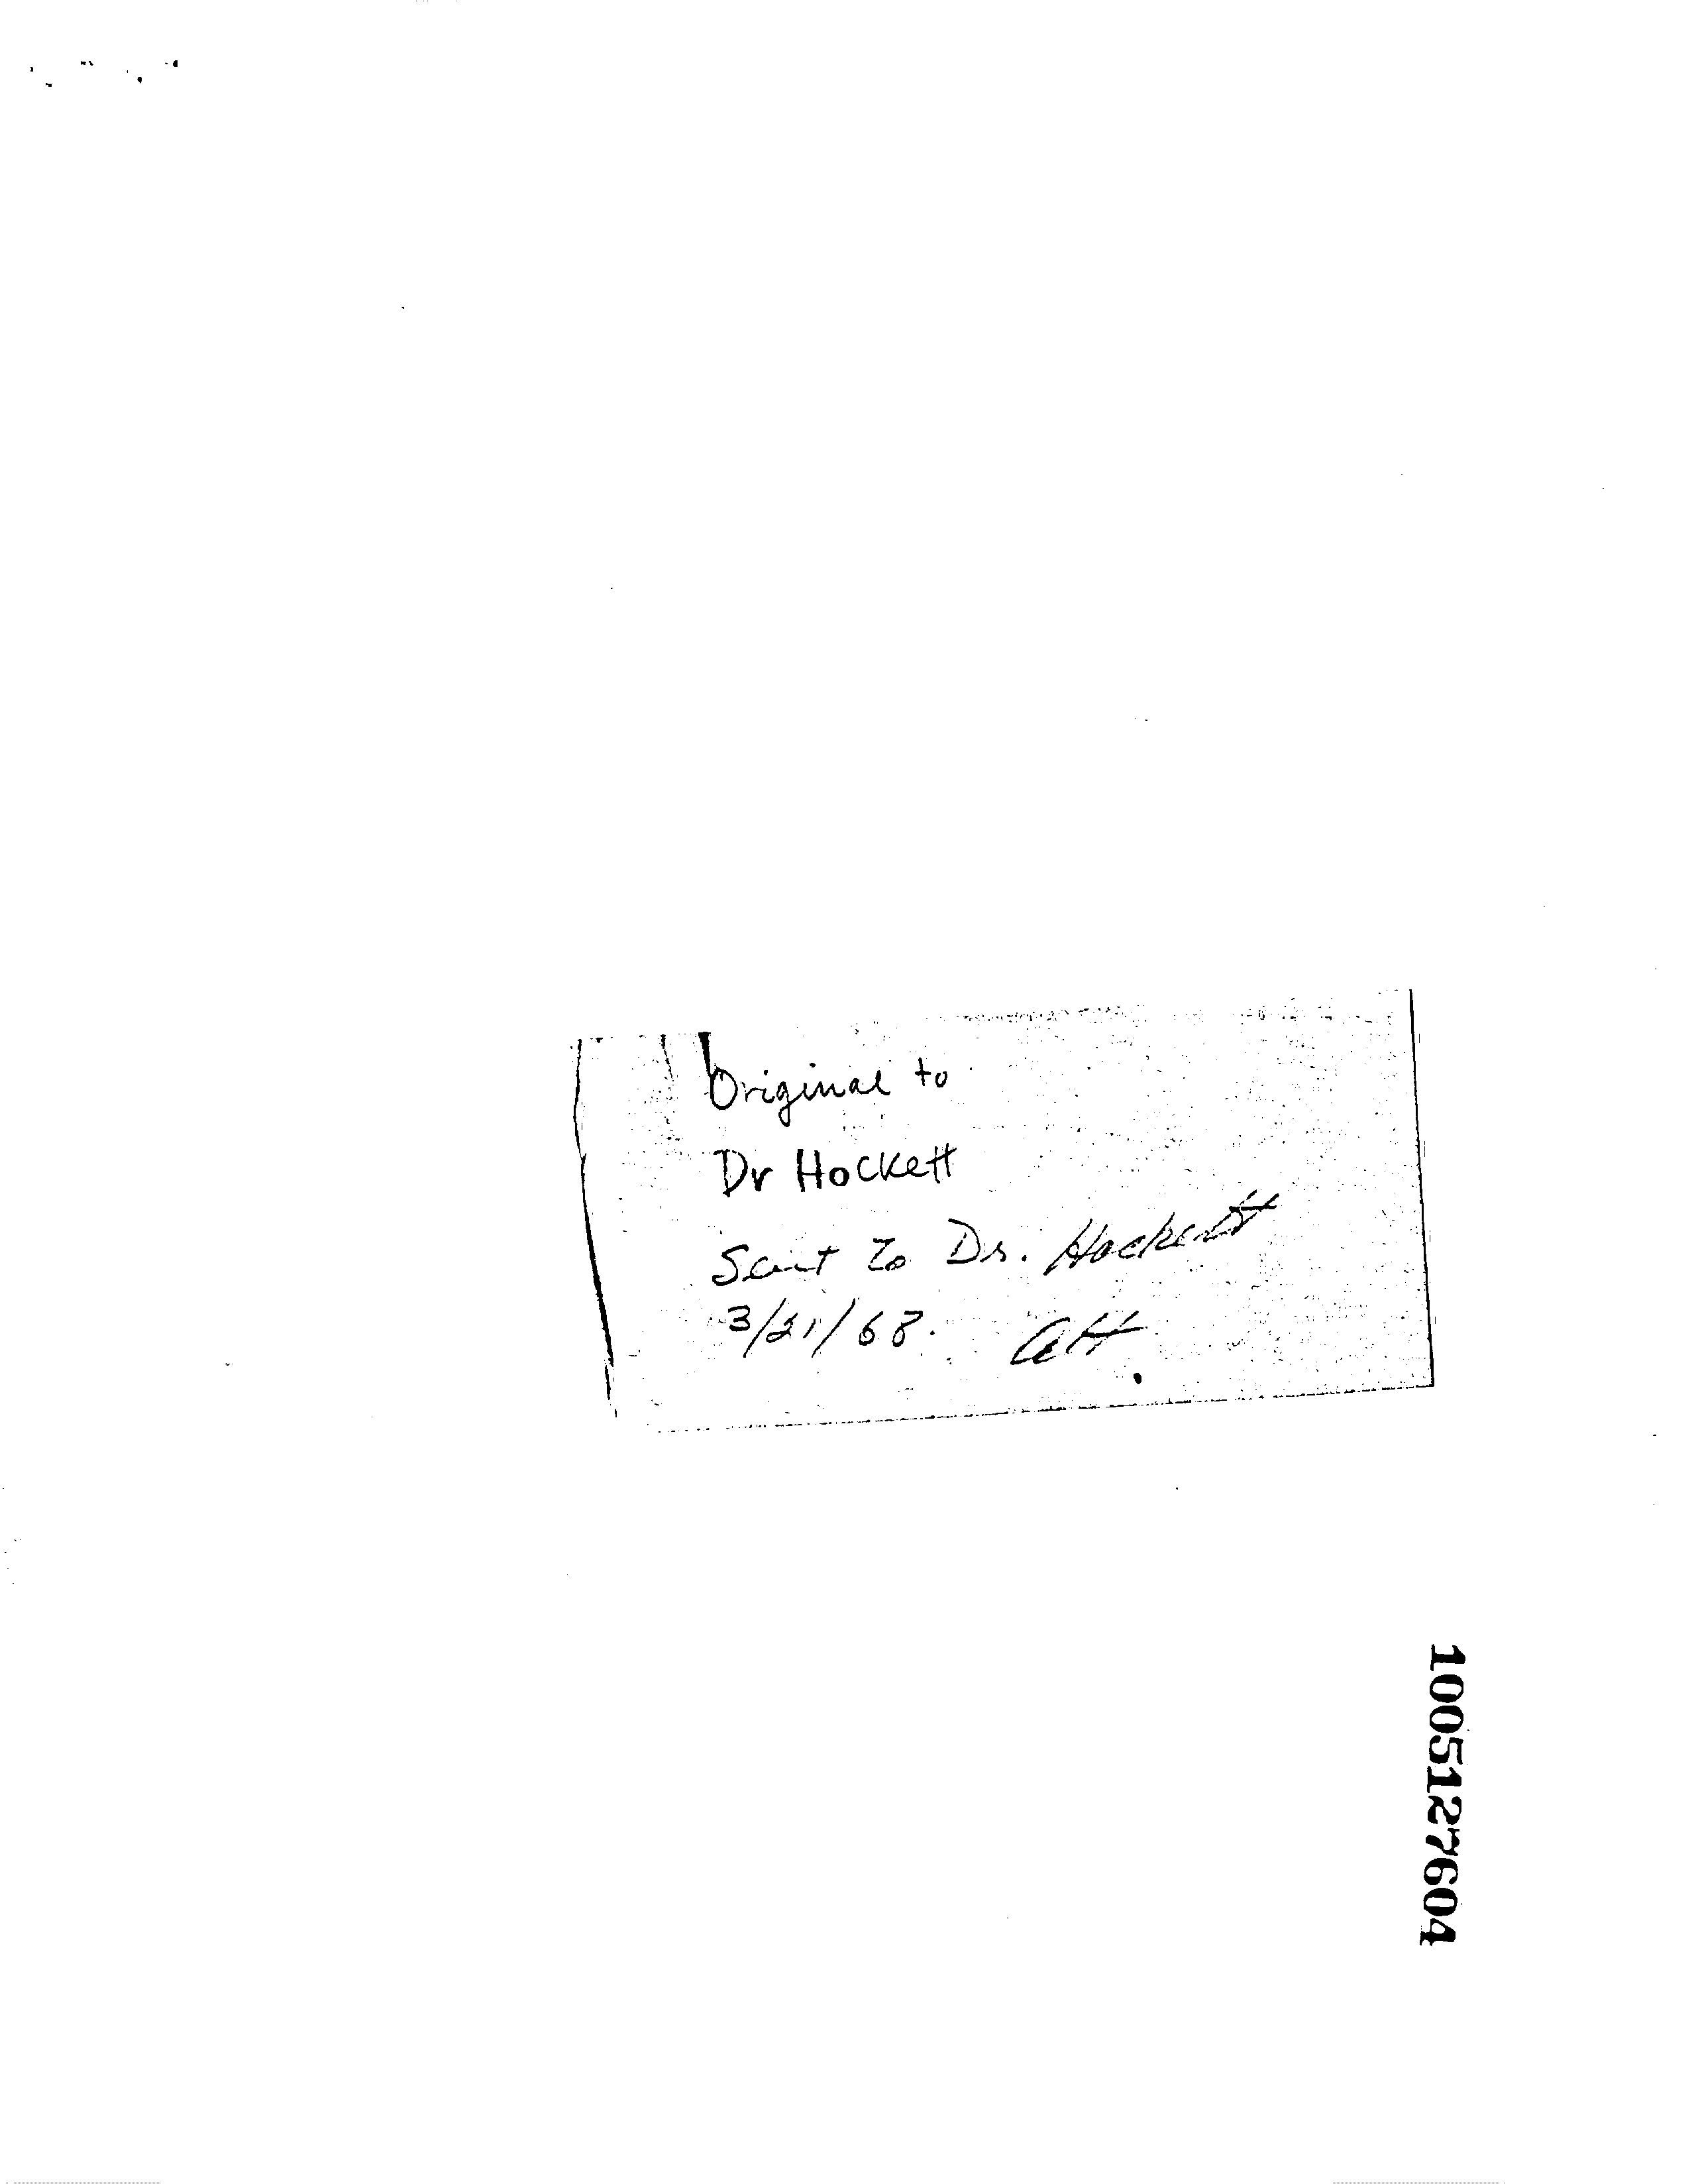 Original to
Dr Hockett
Sent to Dr. Hockett
3/21/68.
1005127604